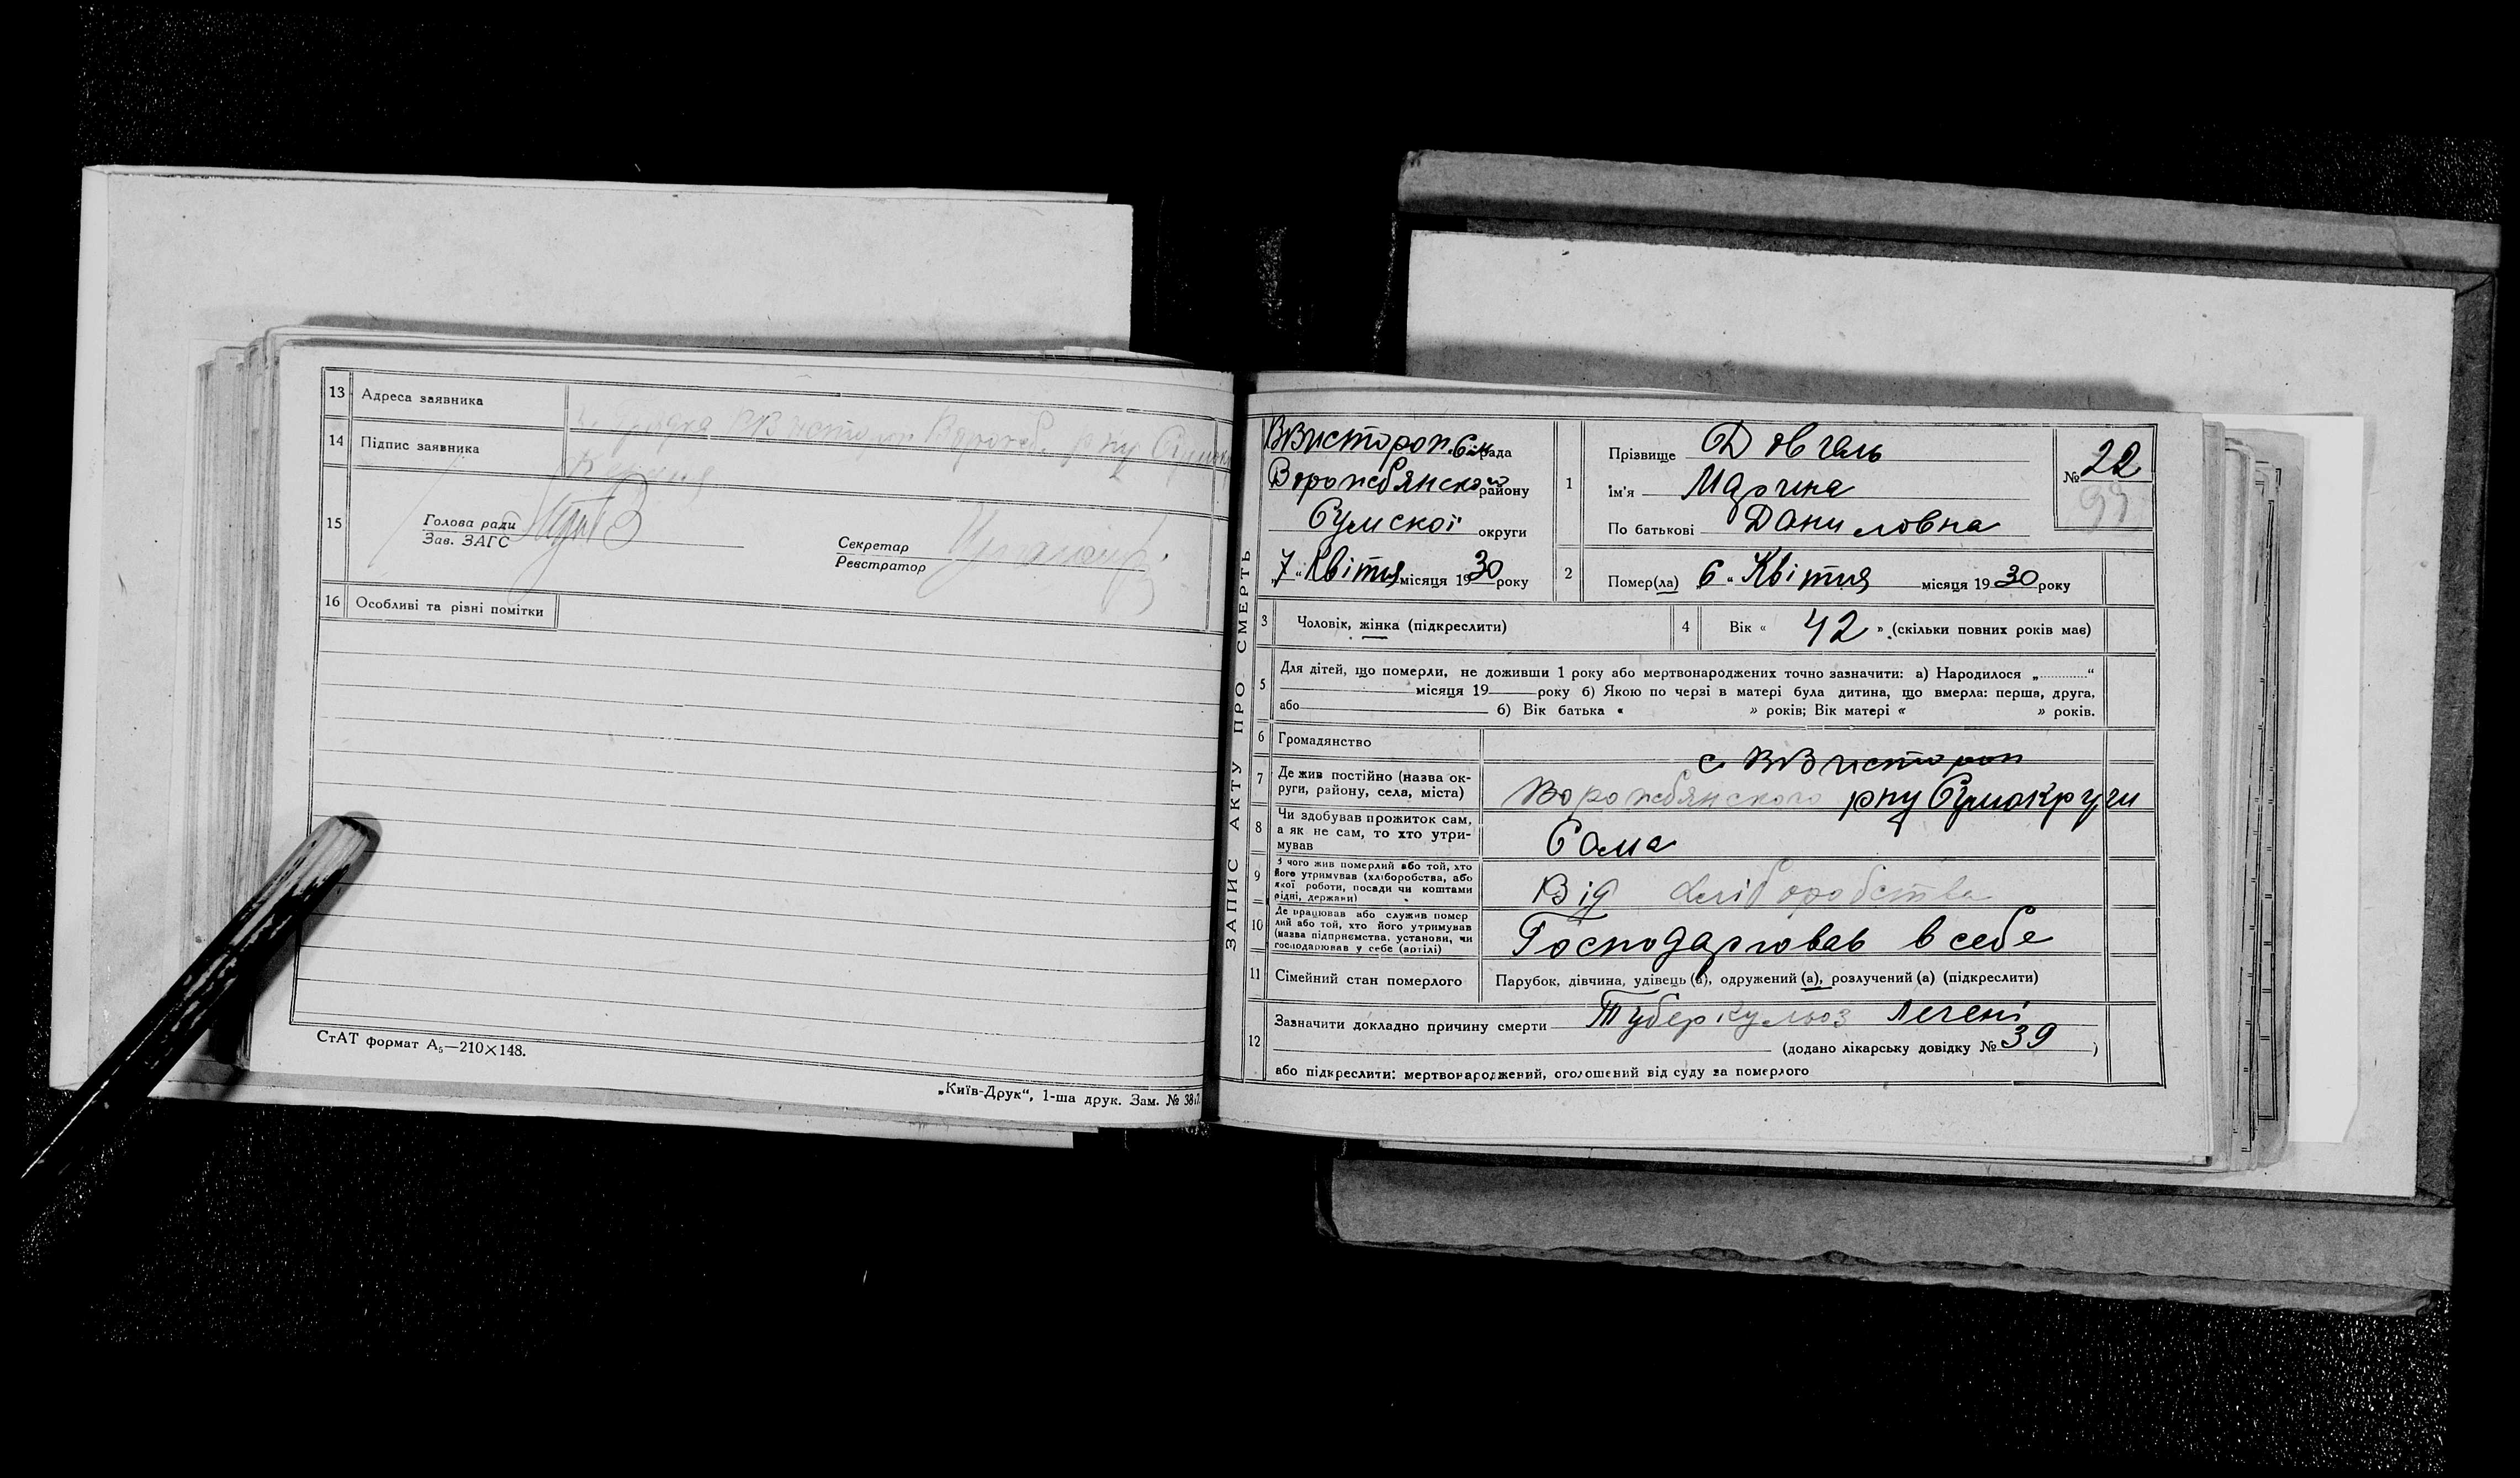 13 Адреса заявника
14 Підпис заявника
15 Голова ради
Зав. ЗАГС
Секретар
Реєстратор
16 Особливі та різні помітки
СтАТ формат А₅—210×148.
„Київ-Друк“, 1-ша друк. Зам. №
ЗАПИС АКТУ ПРО СМЕРТЬ
ВВистороп. рада
Ворожбянского району
Сумской округи
„7“ Квітня місяця 1930 року
1 Прізвище Довгаль
Ім'я Марина
По батькові Даниловна
№ 22
2 Помер(ла) 6 „ Квітня місяця 1930 року
3 Чоловік, жінка (підкреслити)
4 Вік « 42 » (скільки повних років має)
5 Для дітей, що померли, не доживши 1 року або мертвонароджених точно зазначити: а) Народилося „............“
місяця 19 року б) Якою по черзі в матері була дитина, що вмерла: перша, друга,
або б) Вік батька « » років; Вік матері « » років.
6 Громадянство
7 Де жив постійно (назва ок-
руги, району, села, міста)
с ВВистороп
Ворожбянского рну Сумокруги
8 Чи здобував прожиток сам,
а як не сам, то хто утри-
мував
Сама
9 З чого жив померлий або той, хто
його утримував (хліборобства, або
якої роботи, посади чи коштами
рідні, держави)
Від хліборобства
10 Де працював або служив помер
лий або той, хто його утримував
(назва підприємства, установи, чи
господарював у себе (артілі)
Господарював в себе
11 Сімейний стан померлого
Парубок, дівчина, удівець (а), одружений (а), розлучений (а) (підкреслити)
12 Зазначити докладно причину смерти Туберкульоз легені
(додано лікарську довідку № 39 )
або підкреслити: мертвонароджений, оголошений від суду за померлого